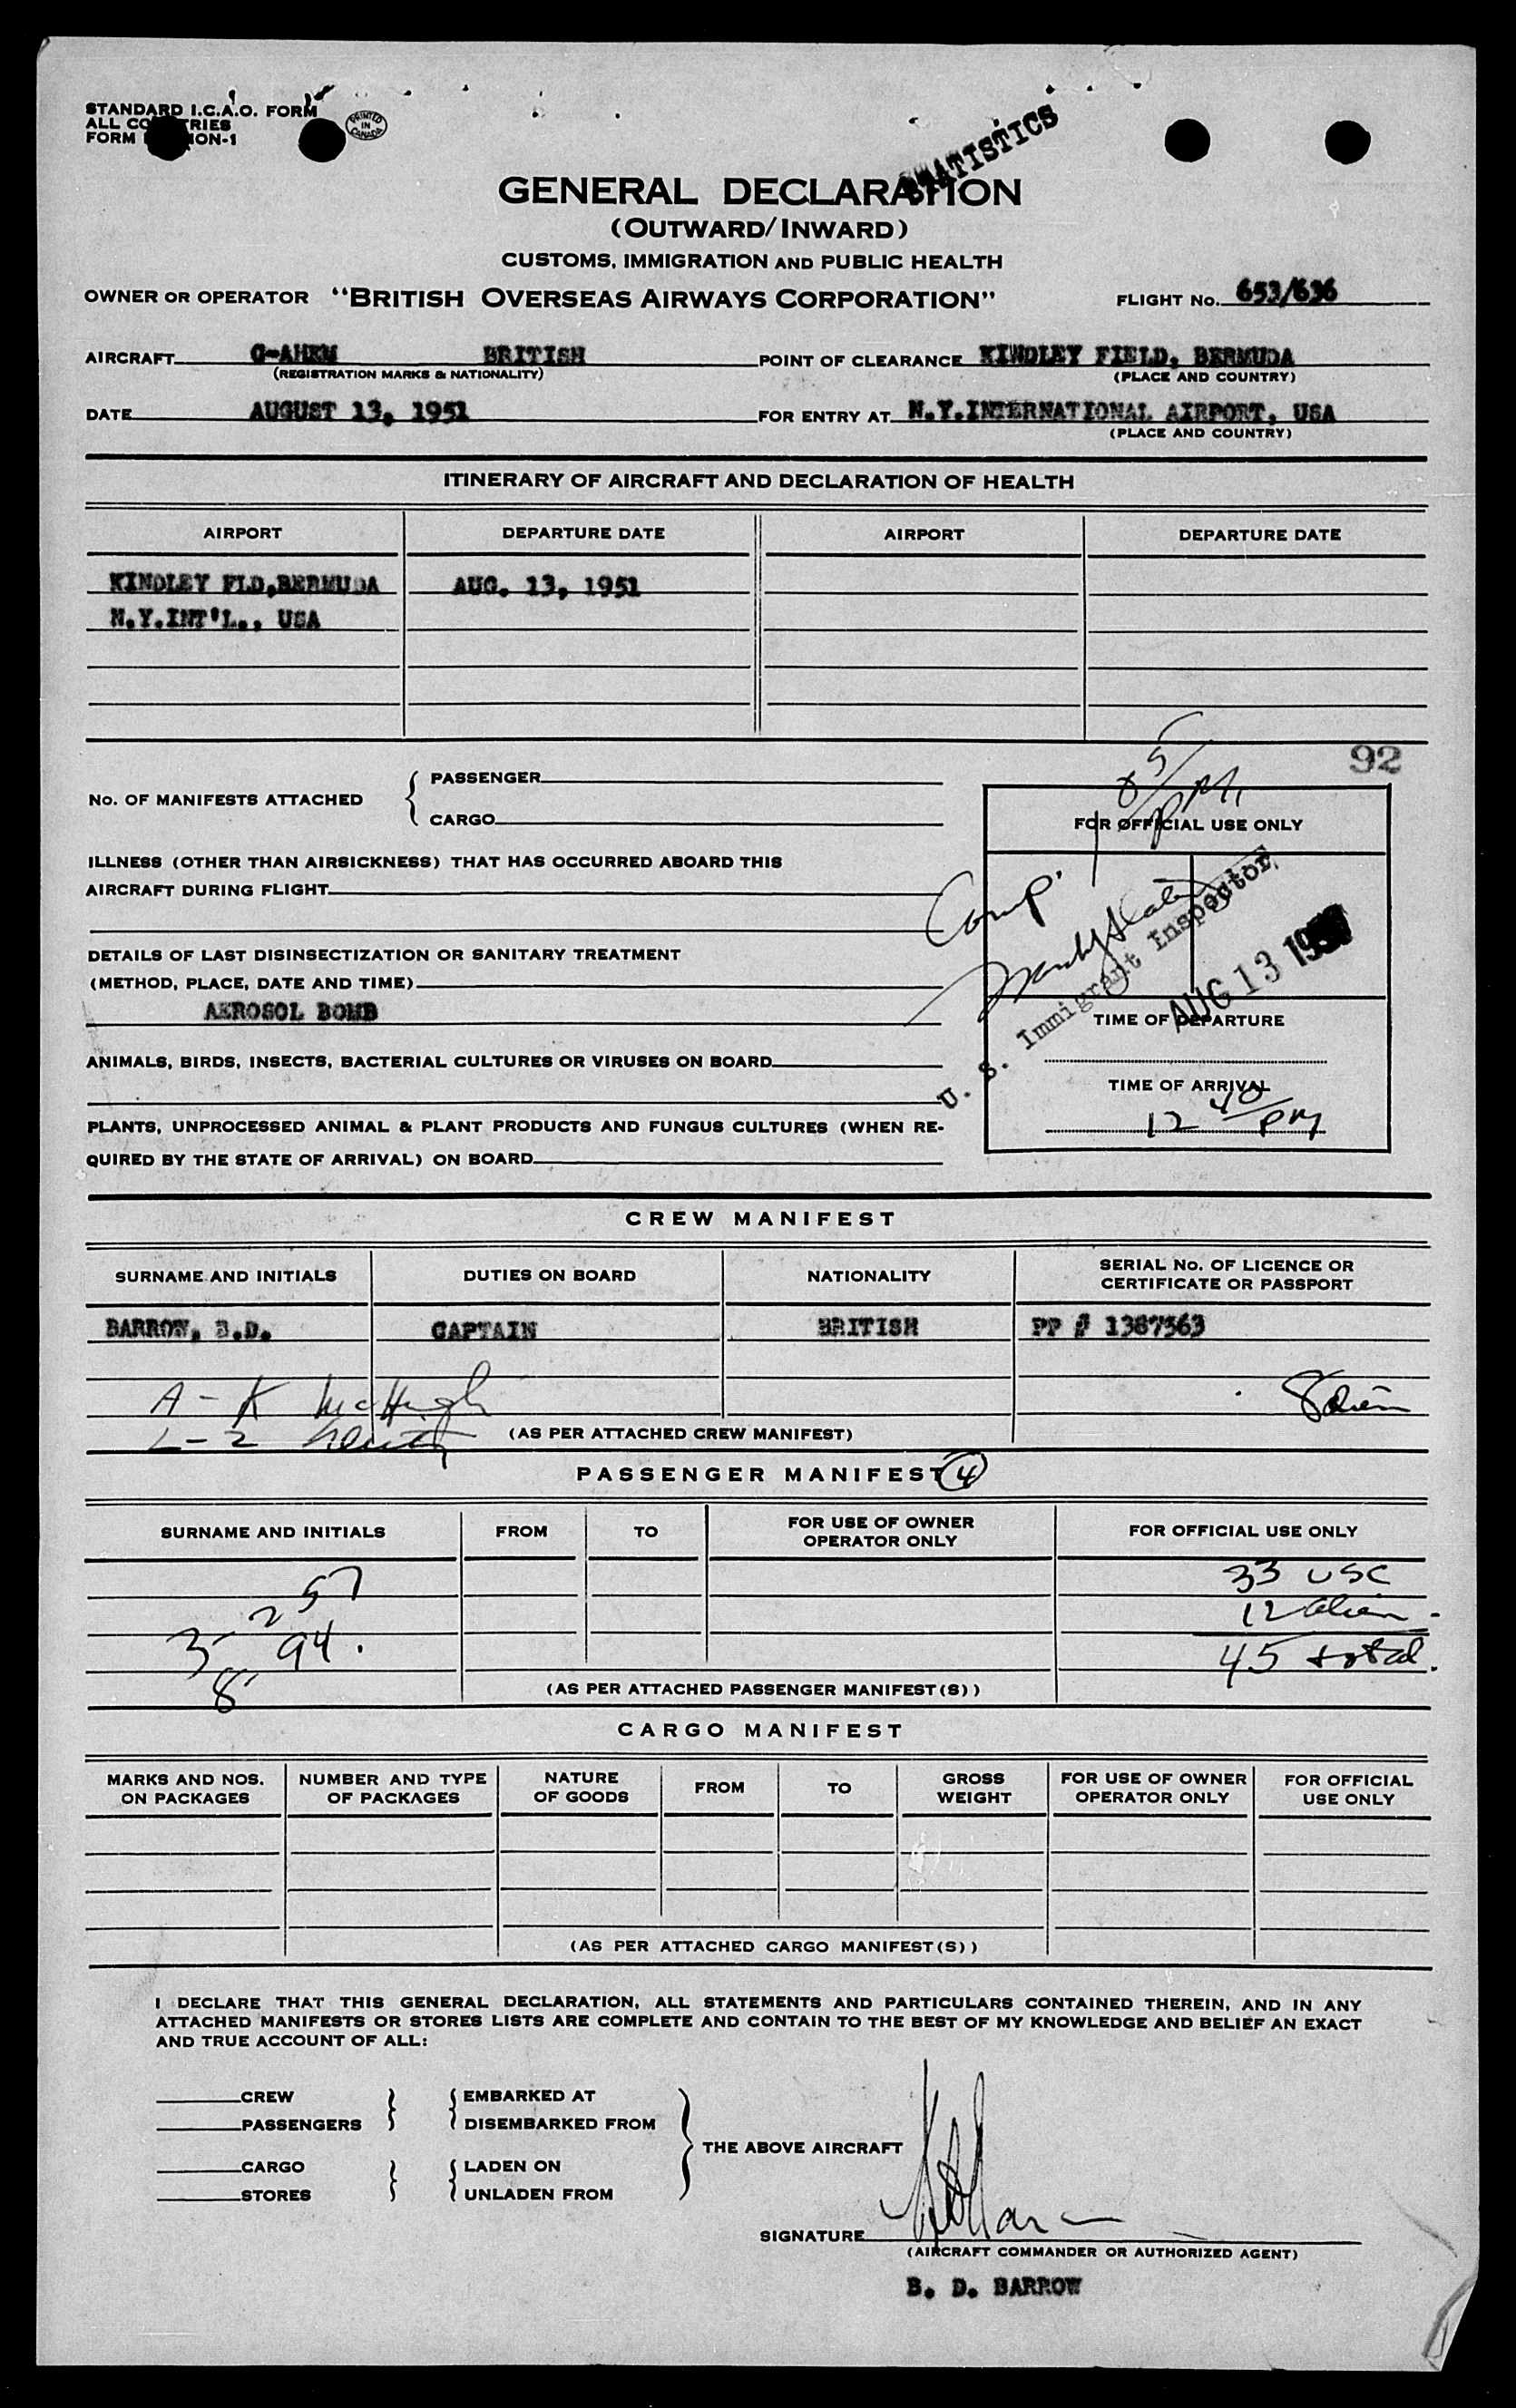 STANDARD I.C.A.O. FORM
ALL
FORM
PRINTED IN CANADA
STATISTICS
GENERAL DECLARATION
(OUTWARD/INWARD)
CUSTOMS, IMMIGRATION AND PUBLIC HEALTH
OWNER OR OPERATOR "BRITISH OVERSEAS AIRWAYS CORPORATION" FLIGHT No. 653/636
AIRCRAFT G-AHEM BRITISH POINT OF CLEARANCE KINDLEY FIELD, BERMUDA
(REGISTRATION MARKS & NATIONALITY) (PLACE AND COUNTRY)
DATE AUGUST 13, 1951 FOR ENTRY AT N.Y.INTERNATIONAL AIRPORT, USA
(PLACE AND COUNTRY)
ITINERARY OF AIRCRAFT AND DECLARATION OF HEALTH
AIRPORT DEPARTURE DATE AIRPORT DEPARTURE DATE
KINDLEY FLD,BERMUDA AUG. 13, 1951
N.Y.INT'L., USA
92
No. OF MANIFESTS ATTACHED
PASSENGER
CARGO
FOR OFFICIAL USE ONLY
ILLNESS (OTHER THAN AIRSICKNESS) THAT HAS OCCURRED ABOARD THIS
AIRCRAFT DURING FLIGHT
Comp.
U. S. Immigrant Inspector
AUG 13
DETAILS OF LAST DISINSECTIZATION OR SANITARY TREATMENT
(METHOD, PLACE, DATE AND TIME)
AEROSOL BOMB
TIME OF DEPARTURE
ANIMALS, BIRDS, INSECTS, BACTERIAL CULTURES OR VIRUSES ON BOARD
TIME OF ARRIVAL
12 40 PM
PLANTS, UNPROCESSED ANIMAL & PLANT PRODUCTS AND FUNGUS CULTURES (WHEN RE-
QUIRED BY THE STATE OF ARRIVAL) ON BOARD
CREW MANIFEST
SURNAME AND INITIALS DUTIES ON BOARD NATIONALITY SERIAL No. OF LICENCE OR
CERTIFICATE OR PASSPORT
BARROW, B.D. CAPTAIN BRITISH PP # 1387563
A - K McHugh 8 alien
L - Z
(AS PER ATTACHED CREW MANIFEST)
PASSENGER MANIFEST 4
SURNAME AND INITIALS FROM TO FOR USE OF OWNER
OPERATOR ONLY FOR OFFICIAL USE ONLY
257 33 USC
12 alien
3- 94. 45 total.
8
(AS PER ATTACHED PASSENGER MANIFEST(S))
CARGO MANIFEST
MARKS AND NOS.
ON PACKAGES NUMBER AND TYPE
OF PACKAGES NATURE
OF GOODS FROM TO GROSS
WEIGHT FOR USE OF OWNER
OPERATOR ONLY FOR OFFICIAL
USE ONLY
(AS PER ATTACHED CARGO MANIFEST(S))
I DECLARE THAT THIS GENERAL DECLARATION, ALL STATEMENTS AND PARTICULARS CONTAINED THEREIN, AND IN ANY
ATTACHED MANIFESTS OR STORES LISTS ARE COMPLETE AND CONTAIN TO THE BEST OF MY KNOWLEDGE AND BELIEF AN EXACT
AND TRUE ACCOUNT OF ALL:
CREW EMBARKED AT
PASSENGERS DISEMBARKED FROM
THE ABOVE AIRCRAFT
CARGO LADEN ON
STORES UNLADEN FROM
SIGNATURE
(AIRCRAFT COMMANDER OR AUTHORIZED AGENT)
B. D. BARROW